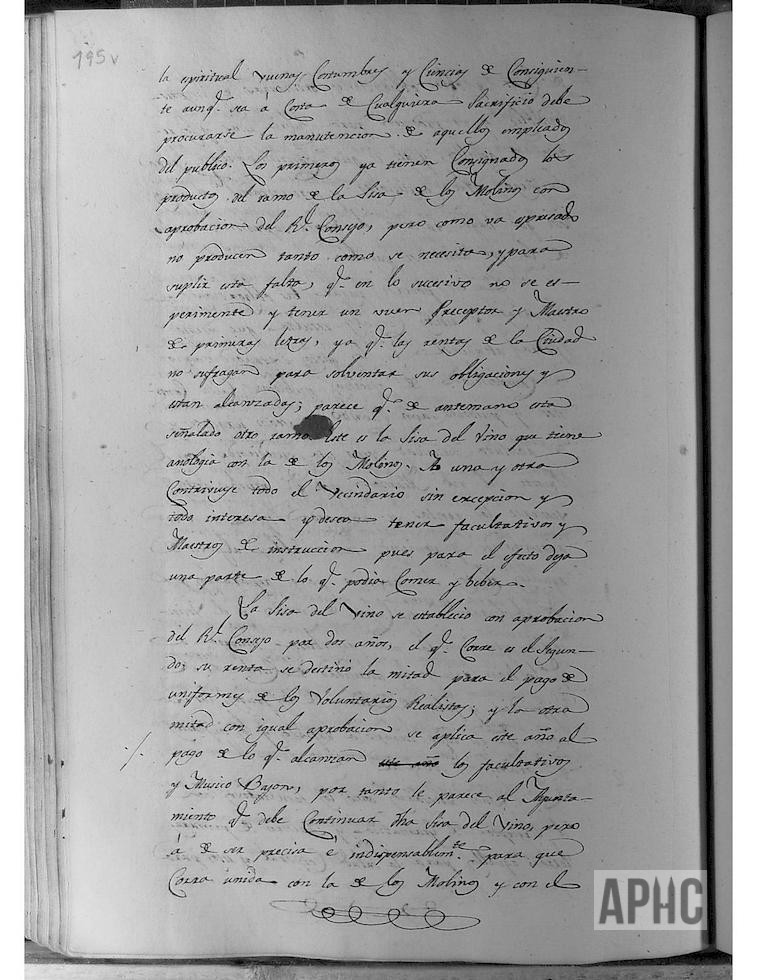 195v
la espiritual vuenas Costumbres y Ciencias de Consiguien-
te aunq.e sea à Costa de Cualquiera Sacrificio debe
procurarse la manutencion de aquellos empleados
del publico. Los primeros ya tienen Consignados los
productos del ramo de la Sisa de los Molinos con
aprobacion del R.l Consejo, pero como va epresado
no producen tanto como se necesita, y para
suplir esta falta, q.e en lo sucesivo no se es-
perimente y tener un vuen Preceptor y Maestro
de primeras letras, ya q.e las rentas de la Ciudad
no sufragan para solventar sus obligaciones y
estan alcanzadas; parece q.e de antemano esta
señalado otro ramo. Este es la Sisa del Vino que tiene
anologia con la de los Molinos. A una y otra
Contrivuye todo el Vecindario sin excepcion y
todo interesa y desea tener facultativos y
Maestros de instruccion pues para el efecto deja
una parte de lo q.e podia Comer y beber.
La Sisa del Vino se establecio con aprobacion
del R.l Consejo por dos años, el q.e Corre es el Segun-
do; su renta se destinò la mitad para el pago de
uniformes de los Voluntarios Realistas; y la otra
mitad con igual aprobacion se aplica este año al
pago de lo q.e alcanzan este año los facultativos
y Musico Bajon, por tanto le parece al Ayunta-
miento q.e debe Continuar dha Sisa del Vino, pero
à de ser precisa è indispensablem.te para que
Corra unida con la de los Molinos y con el
APHC